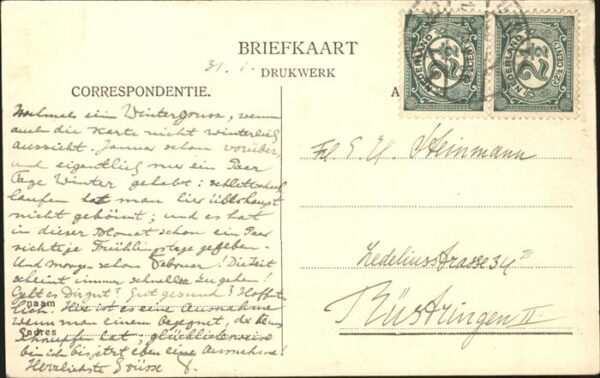 BRIEFKAART
31. 1.
DRUKWERK
CORRESPONDENTIE.
A
NEDERLAND
2½
CENT
NEDERLAND
2½
CENT
Nochmals ein Wintergruss, wenn
auch die Karte nicht winterlich
aussieht. Januar schon vorüber,
und eigentlich nur ein Paar
Tage Winter gehabt: schlittschuh
laufen hat man hier überhaupt
nicht gekönnt; und es hat
in dieser Monat schon ein Paar
richtige Frühlingstage gegeben.
Und morgen schon Februar! Die Zeit
scheint immer schneller zu gehen!
Geht es Dir gut? Gut gesund? Hoffent-
lich. Hier ist es eine Ausnahme
wenn man einem begegnet, der keinen
Schnupfen hat; glücklicherweise
bin ich bis jetzt eben eine Ausnahme!
Herzlichste Grüsse
naam
adres
Frl. E. H. Steinmann
Zedeliusstrasse 34
Rüstringen II